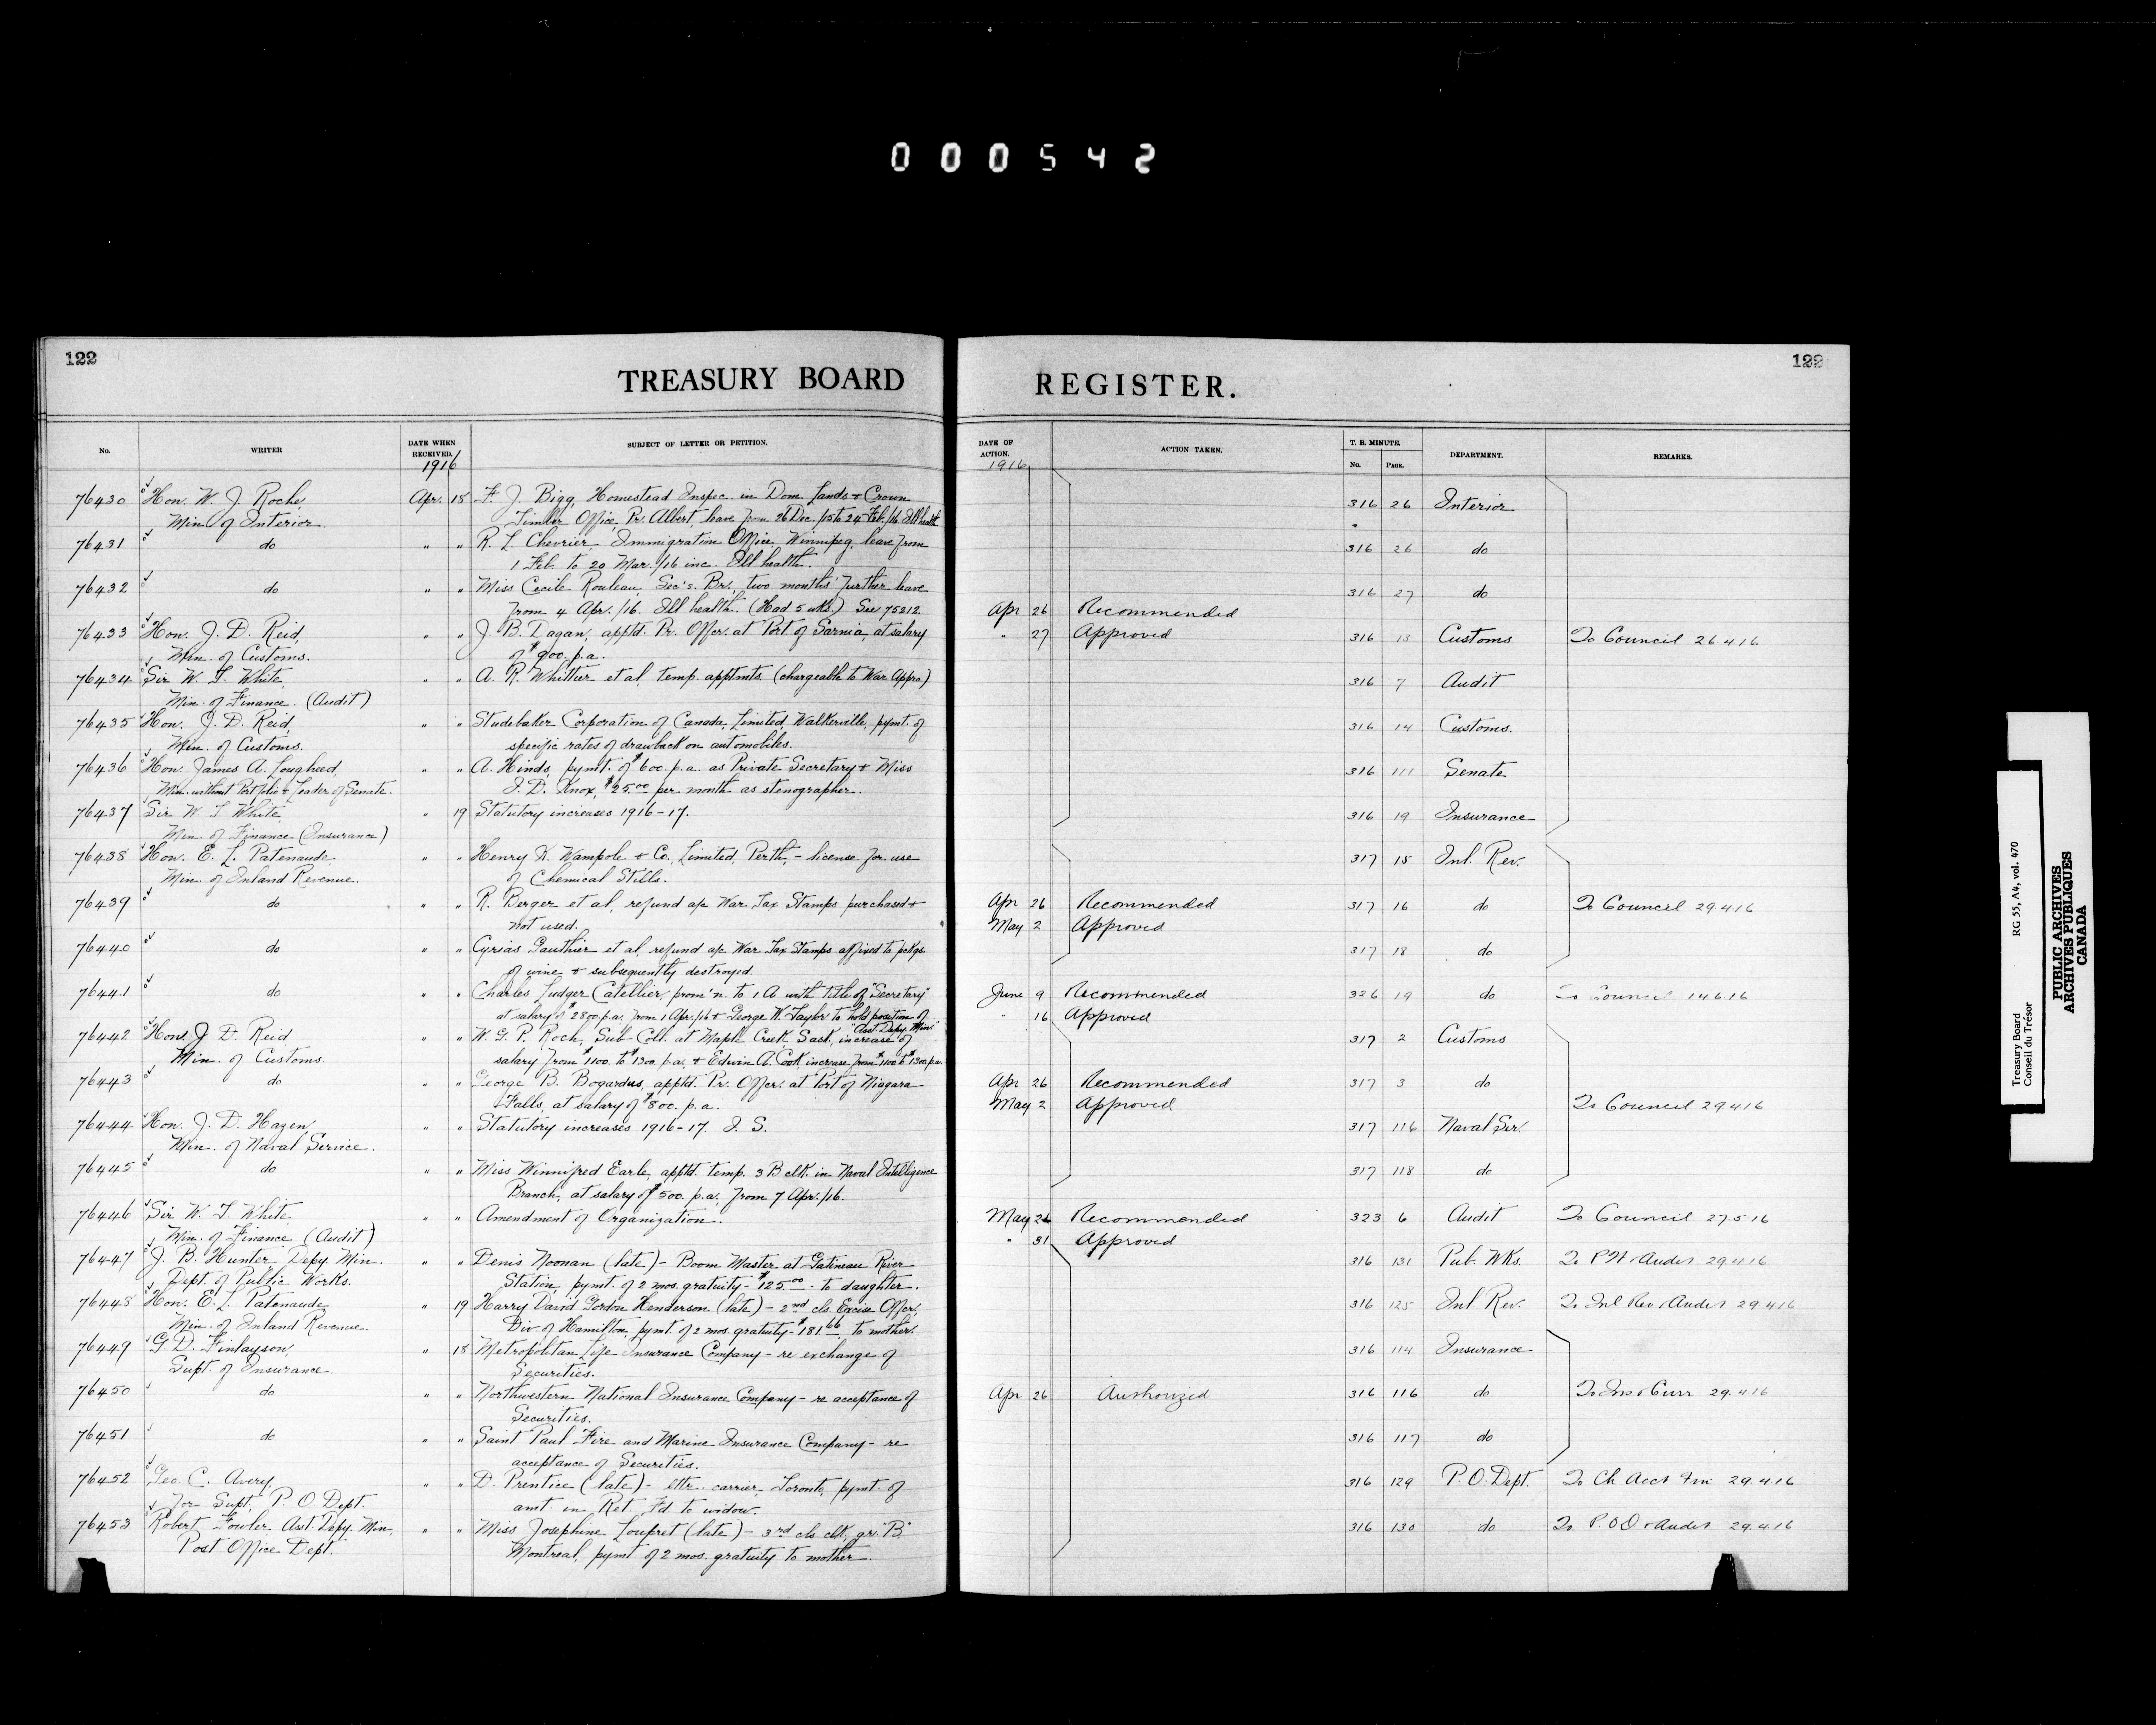 000542
122
TREASURY BOARD
REGISTER.
122
No.
WRITER
DATE WHEN RECEIVED.
1916
SUBJECT OF LETTER OR PETITION.
DATE OF ACTION.
1916
ACTION TAKEN.
T. B. MINUTE.
No.
PAGE.
DEPARTMENT.
REMARKS.
76430 Hon. W. J. Roche, Apr. 18 F. J. Bigg, Homestead Inspec. in Dom. Lands & Crown 316 26 Interior
Min. of Interior. Timber Office, Pr. Albert, leave from 26 Dec. /15 to 24 Feb. /16. Ill health
76431 do " " R. L. Chevrier, Immigration Office, Winnipeg, leave from 316 26 do
1 Feb. to 20 Mar. /16 inc. Ill health.
76432 do " " Miss Cecile Rouleau, Sec's. Br., two months' further leave 316 27 do
from 4 Apr. /16. Ill health. (Had 5 wks.) See 75212. Apr 26 Recommended
76433 Hon. J. D. Reid, " " J. B. Dagan, apptd. Pr. Offcr. at Port of Sarnia, at salary " 27 Approved 316 13 Customs To Council 26 4 16
Min. of Customs. of $900. p.a.
76434 Sir W. T. White, " " A. R. Whittier et al, temp. apptmts. (chargeable to War Appro.) 316 7 Audit
Min. of Finance. (Audit)
76435 Hon. J. D. Reid, " " Studebaker Corporation of Canada, Limited, Walkerville, pymt. of 316 14 Customs.
Min. of Customs. specific rates of drawback on automobiles.
76436 Hon. James A. Lougheed, " " A. Hinds, pymt. of $600. p.a. as Private Secretary & Miss 316 111 Senate
Min. without Portfolio & Leader of Senate. J. D. Knox, $25.00 per month as stenographer.
76437 Sir W. T. White, " 19 Statutory increases 1916-17. 316 19 Insurance
Min. of Finance (Insurance)
76438 Hon. E. L. Patenaude " " Henry K. Wampole & Co., Limited, Perth, - license for use 317 15 Inl. Rev.
Min. of Inland Revenue. of Chemical Stills.
76439 do " " R. Berger et al, refund a/c War Tax Stamps purchased & Apr 26 Recommended 317 16 do To Council 29 4 16
not used. May 2 Approved
76440 do " " Cyrias Gauthier et al, refund a/c War Tax Stamps affixed to pckgs. 317 18 do
of wine & subsequently destroyed.
76441 do " " Charles Ludger Catellier, prom'n. to 1 A with title of "Secretary" June 9 Recommended 326 19 do To Council 14 6 16
at salary of $2800 p.a. from 1 Apr. /16 & George W. Taylor to hold position of " 16 Approved
"Asst. Depy. Min."
76442 Hon. J. D. Reid " " W. G. P. Roch, Sub-Coll. at Maple Creek, Sask., increase of 317 2 Customs
Min. of Customs. salary from $1100. to $1300. p.a., & Edwin A. Cook, increase from $1100 to $1300 p.a.
76443 do " " George B. Bogardus, apptd. Pr. Offcr. at Port of Niagara Apr 26 Recommended 317 3 do
Falls, at salary of $800. p.a. May 2 Approved To Council 29 4 16
76444 Hon. J. D. Hazen, " " Statutory increases 1916-17. I. S. 317 116 Naval Ser.
Min. of Naval Service.
76445 do " " Miss Winnifred Earle, apptd. temp. 3 B clk. in Naval Intelligence 317 118 do
Branch, at salary of $500. p.a., from 7 Apr. /16.
76446 Sir W. T. White " " Amendment of Organization. May 26 Recommended 323 6 Audit To Council 27 5 16
Min. of Finance (Audit) " 31 Approved
76447 J. B. Hunter, Depy. Min. " " Denis Noonan (late) - Boom Master at Gatineau River 316 131 Pub. Wks. To P W & Audit 29 4 16
Dept. of Public Works. Station, pymt. of 2 mos. gratuity - $125.00 - to daughter.
76448 Hon. E. L. Patenaude " 19 Harry David Gordon Henderson (late) - 2nd cls. Excise Offcr., 316 125 Inl. Rev. To Inl Rev & Audit 29 4 16
Min. of Inland Revenue. Div. of Hamilton, pymt. of 2 mos. gratuity - $181.66 to mother.
76449 G. D. Finlayson, " 18 Metropolitan Life Insurance Company - re exchange of 316 114 Insurance
Supt. of Insurance. Securities.
76450 do " " Northwestern National Insurance Company - re acceptance of Apr 26 Authorized 316 116 do To Ins & Curr 29.4 16
Securities.
76451 do " " Saint Paul Fire and Marine Insurance Company - re 316 117 do
acceptance of Securities.
76452 Geo. C. Avery, " " D. Prentice (late) - lttr. carrier, Toronto, pymt. of 316 129 P. O. Dept. To Ch Acct Fin 29.4.16
for Supt. P. O Dept. amt. in Ret. Fd. to widow.
76453 Robert Fowler, Asst. Depy. Min. " " Miss Josephine Loupret (late) - 3rd cls. clk. gr. "B" 316 130 do To P. O D & Audit 29.4.16
Post Office Dept. Montreal, pymt. of 2 mos. gratuity to mother.
Treasury Board RG 55, A4, vol. 470
Conseil du Trésor
PUBLIC ARCHIVES
ARCHIVES PUBLIQUES
CANADA